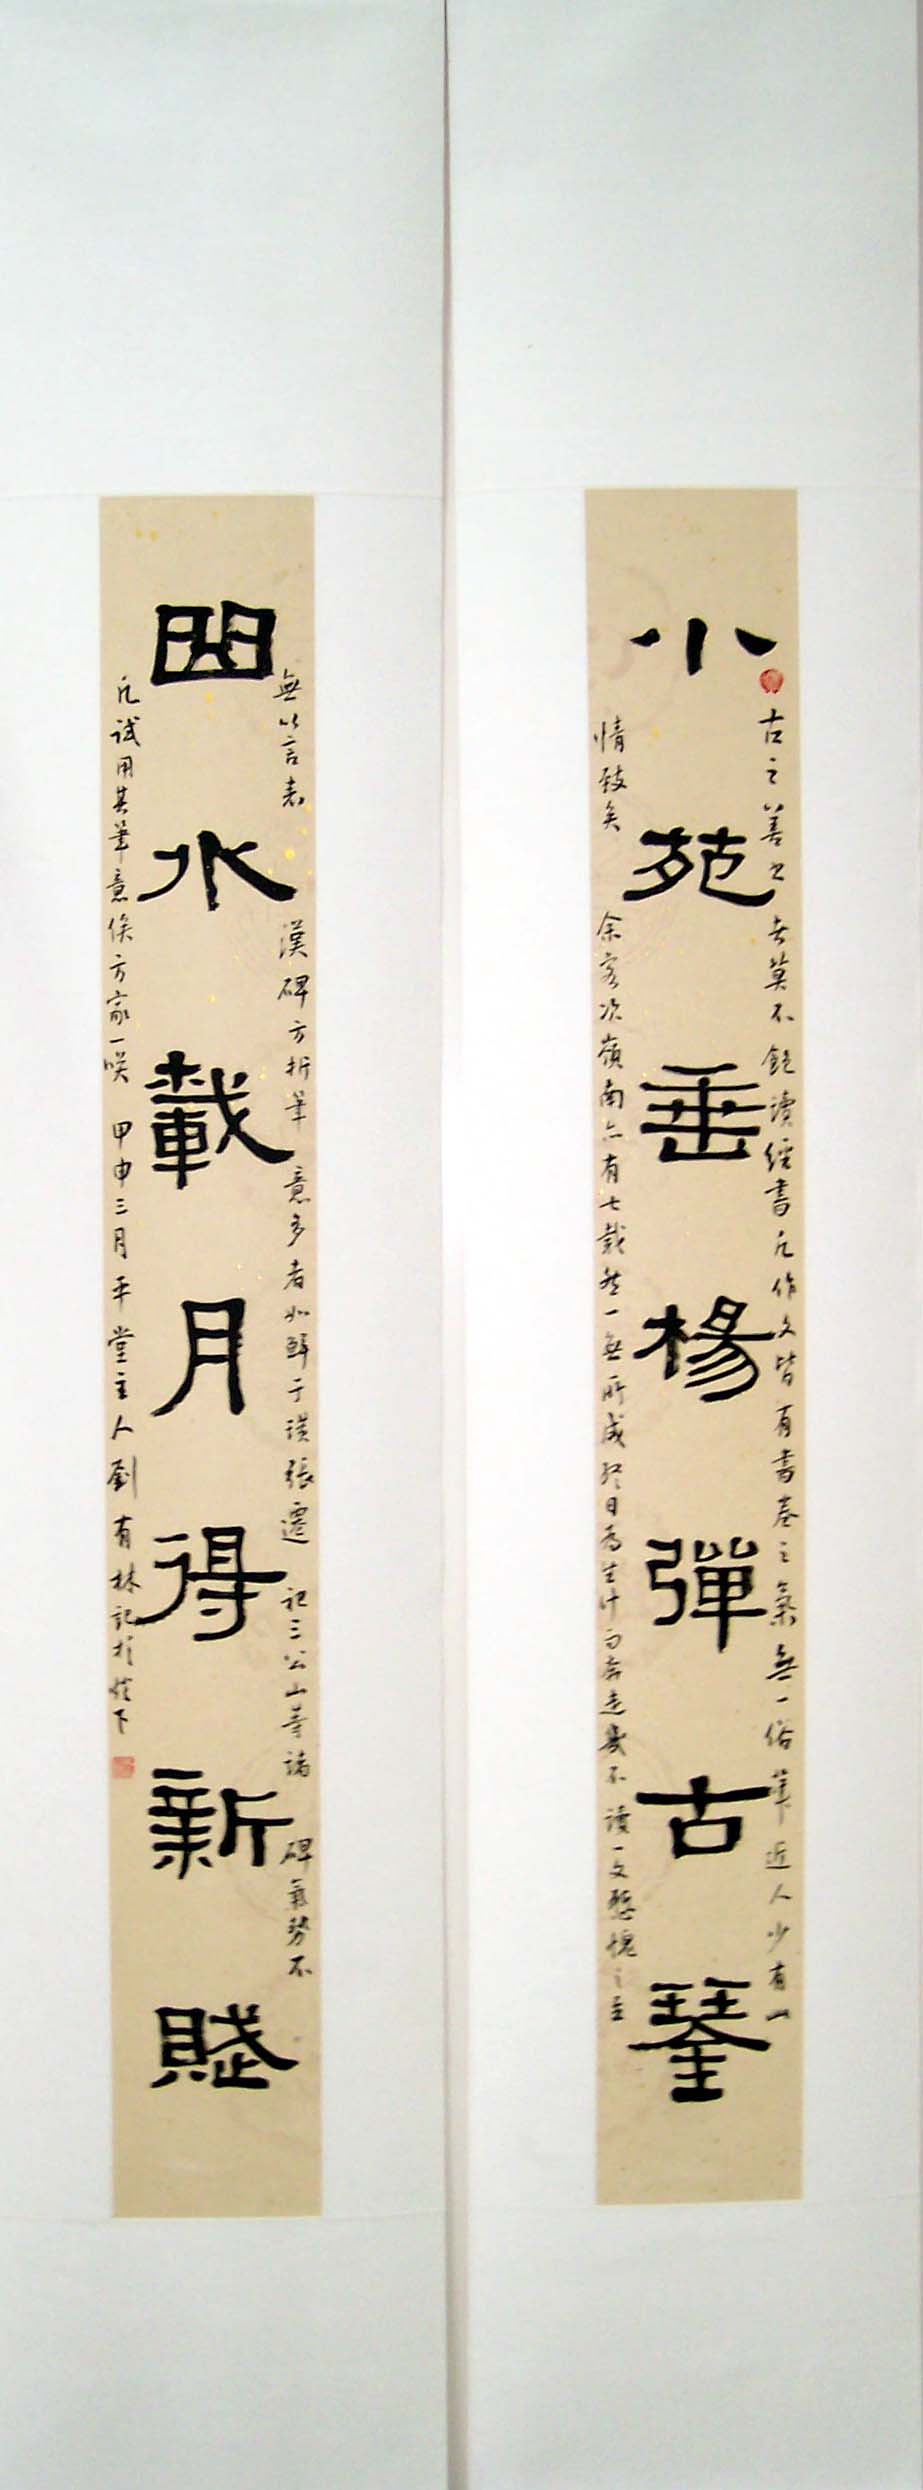 小苑垂楊彈古琴
古之善書者莫不飽讀經書凡作文皆有書卷之氣無一俗筆近人少有此
情致矣 余客次嶺南亦有七載然一無所成終日為生計而奔走幾不讀一文慙愧之至
四水載月得新賦
漢碑方折筆意多者如鮮于璜張遷記三公山等諸碑氣勢不
無以言表
凡試用其筆意俟方家一咲 甲申三月平堂主人劉有林記於燈下